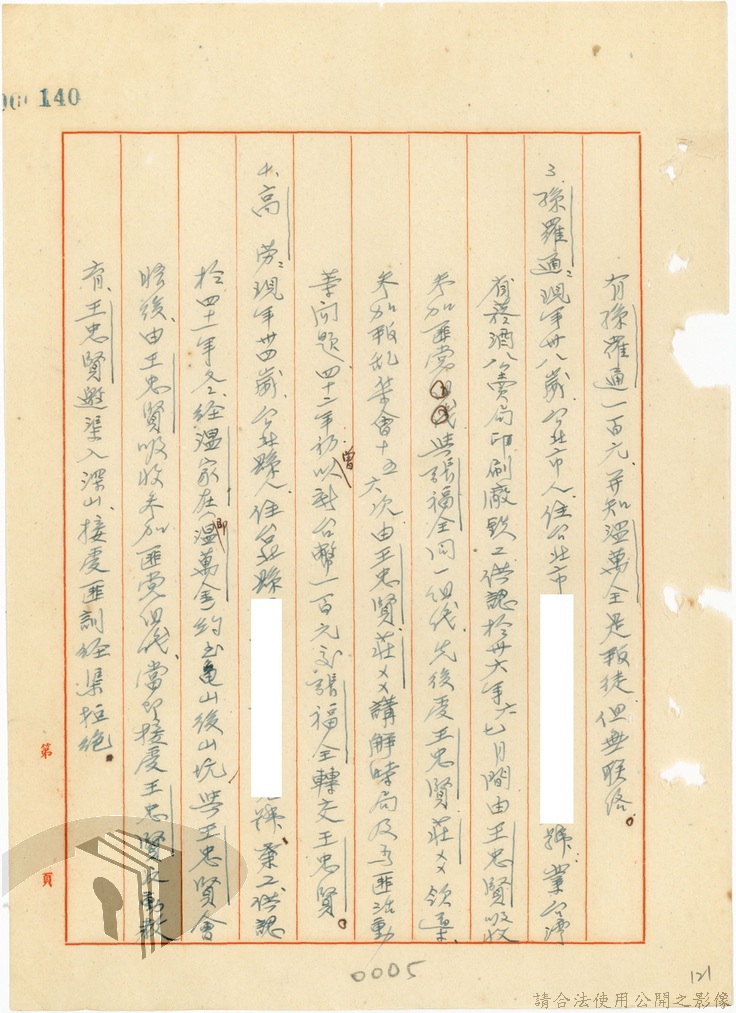 140
有孫羅通一百元、並知溫萬全是叛徒但無联絡。
3. 孫羅通:現年卅八歲、台北市人、住台北市
號業台灣
省菸酒公賣局印刷廠鉄工供認於卅六年六七月間由王忠賢吸收
參加匪黨與張福全同一組織先後受王忠賢、莊××領導、
參加叛乱集會十五六次由王忠賢、莊××講解時局及為匪活動
等問題四十二年初曾以新台幣一百元交張福全轉交王忠賢。
4. 高 勞:現年卅四歲、台北縣人、住台北縣
號、業工供認
於四十一年冬、經溫家在(即溫萬金)約至龜山後山坑、與王忠賢會
晤後、由王忠賢吸收參加匪党組織、常受王忠賢
有、王忠賢邀渠入深山、接受匪訓經渠拒絶。
第 頁
0005
121
請合法使用公開之影像